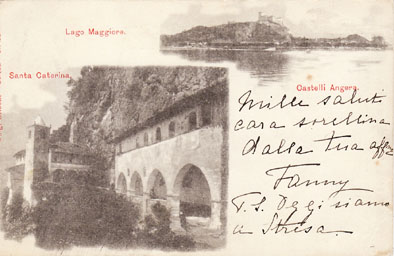 Lago Maggiore.
Santa Caterina.
Castelli Angera.
Mille saluti
cara sorellina
dalla tua aff
Fanny
P.S. Oggi siamo
a Stresa.